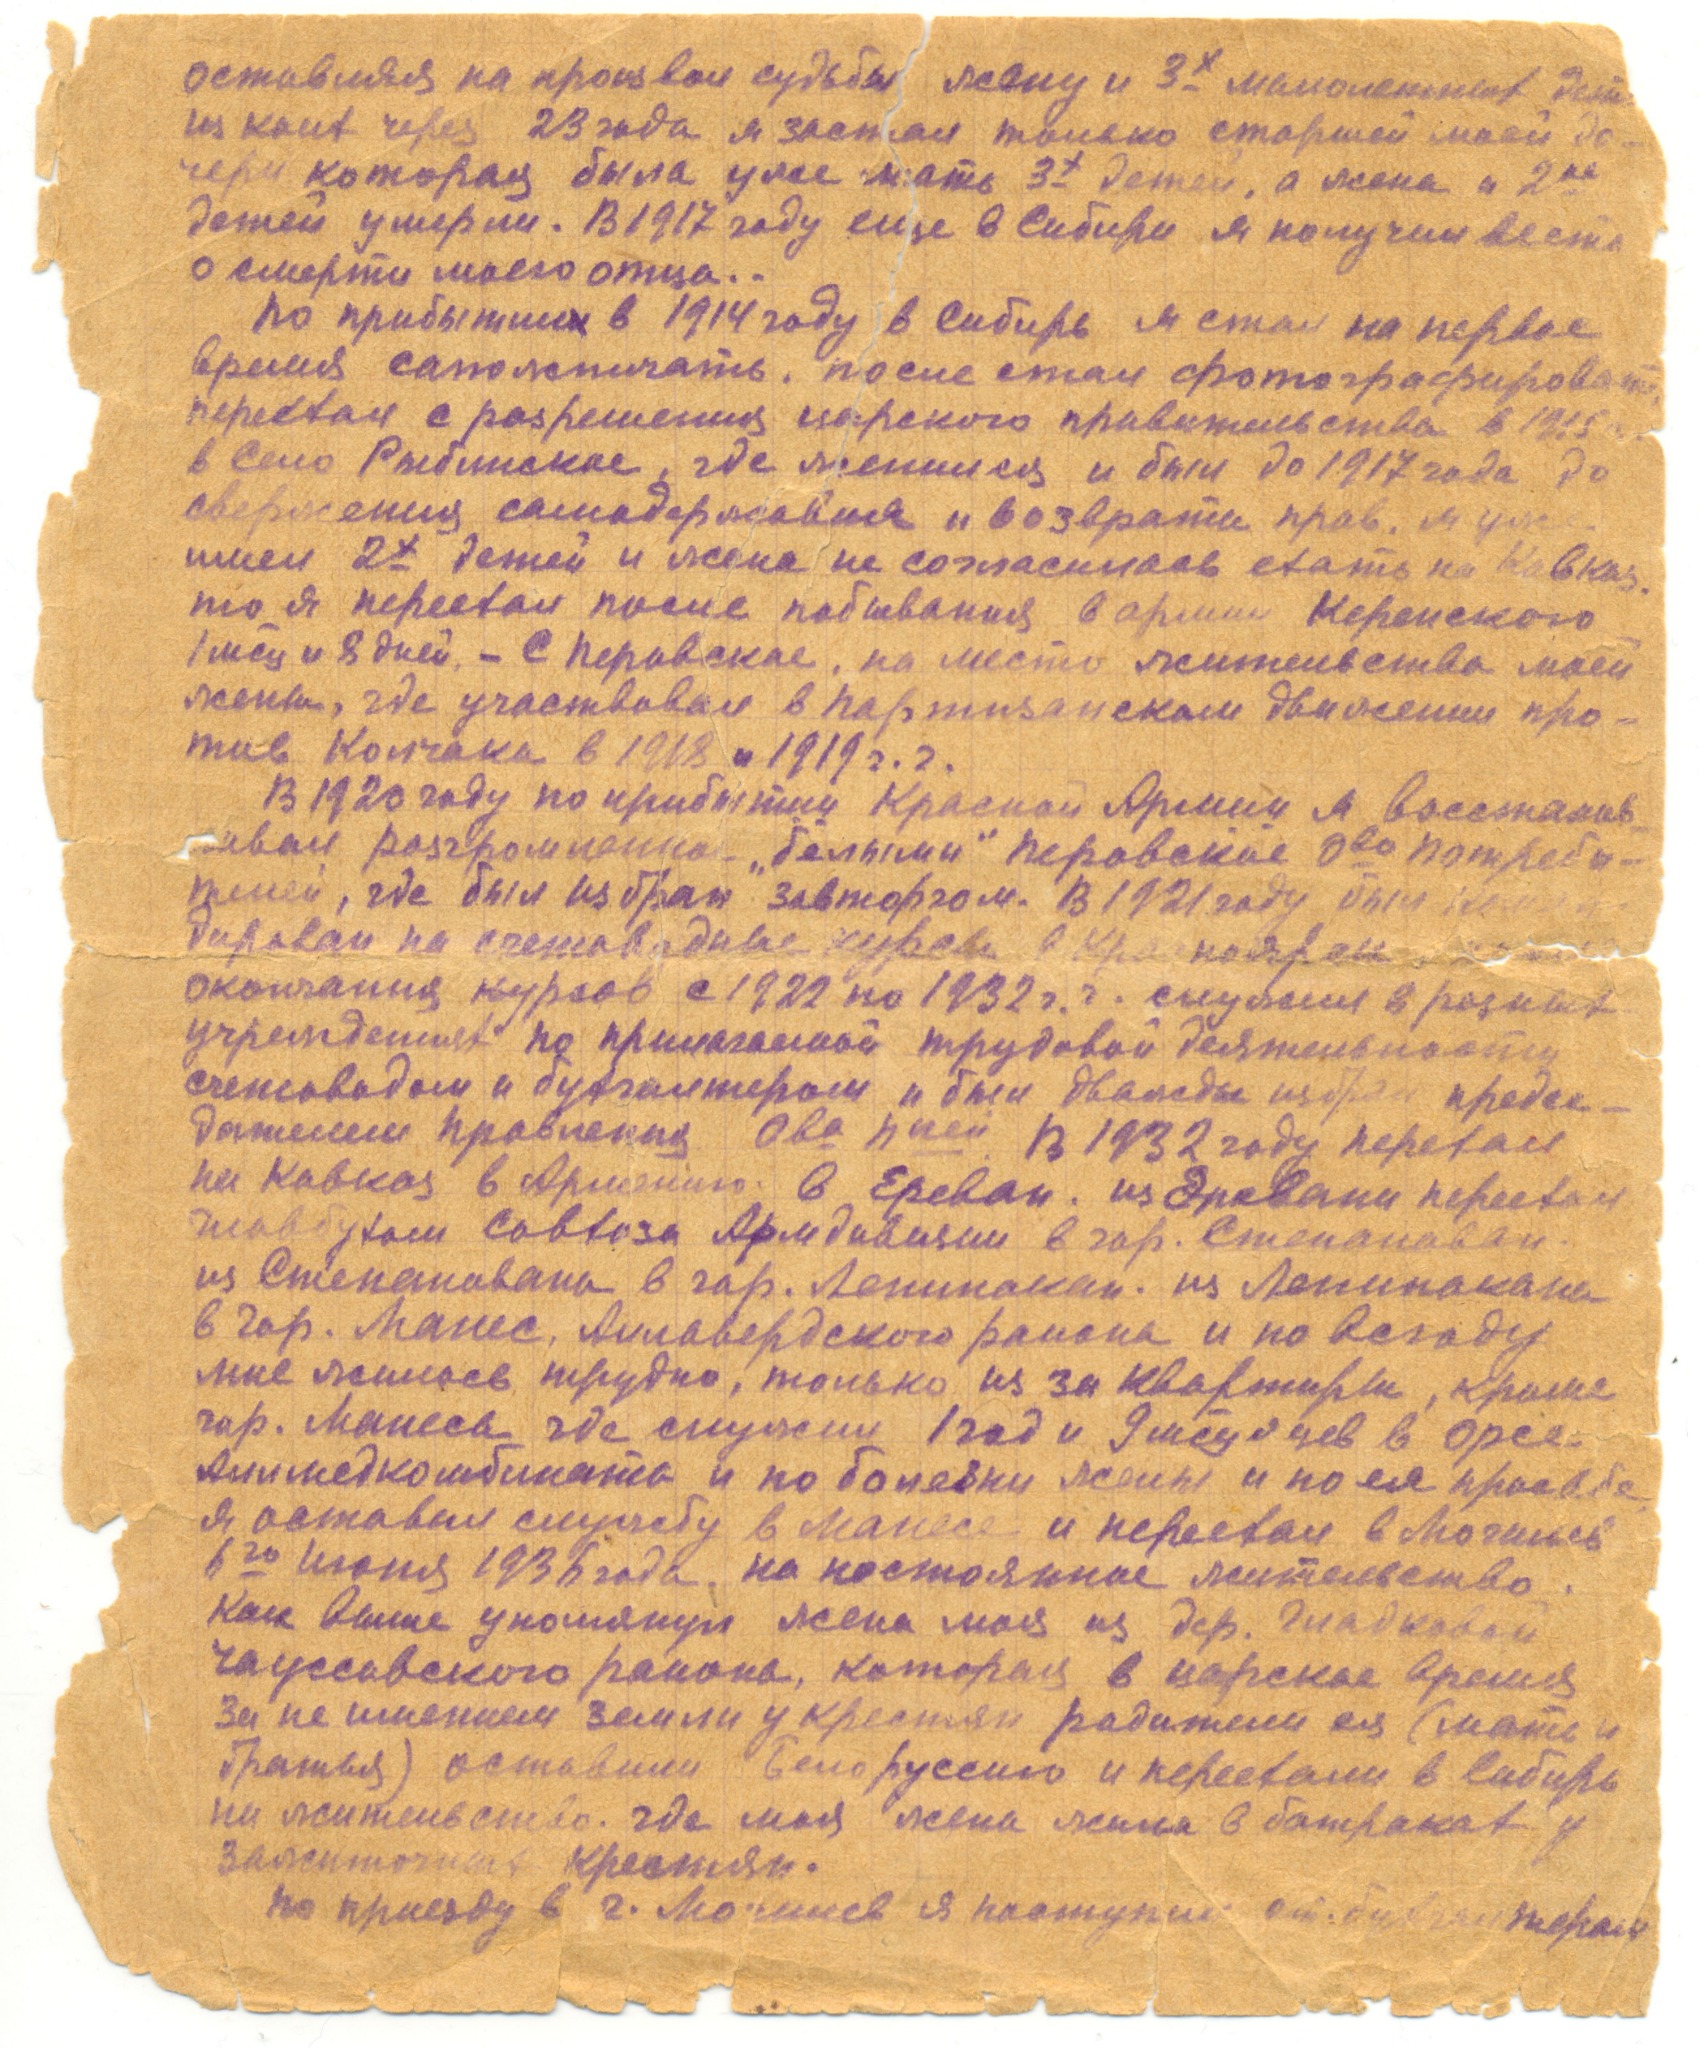 оставляя на произвол судьбы жену и 3х малолетних дет
из коих через 23 года я застал только старшей моей до-
чери которая была уже мать 3х детей, а жена и 2ое
детей умерли. В 1917 году еще в Сибири я получил весть
о смерти моего отца..
По прибытии в 1914 году в Сибирь я стал на первое
время сапожничать. после стал фотографировать,
перехал с разрешения царского правительства в 1915
в село Рыбинское, где женился и был до 1917 года до
свержения самодержавия и возврати прав. я уже
имел 2х детей и жена не согласилась ехать на Кавказ.
то я переехал после побывания в армии Керенского
1 мсц и 8 дней. – С Перовское, на место жительства моей
жены, где участвовал в партизанском движении про-
тив Колчака в 1918 и 1919 г. г.
В 1920 году по прибытии Красной Армии я восстанав-
ивал разгромленно- „белыми" Перовское Ово потреби-
телей, где был избран "завторгом. В 1921 году был
дирован на счетоводные курсы в Красноярск
окончания курсов с 1922 по 1932 г. г. служил в разных
учреждениях по прилагаемой трудовой деятельности
счетоводом и бухгалтером и был дважды избран предсе-
дателем Правления Ова Плей. В 1932 году перехал
на Кавказ в Армению. в Ереван. из Эревани переехал
главбухом Совхоза Армдивизии в гор. Степанаван.
из Степанавана в гор. Ленинакан. из Ленинакана
в гор. Манес, Аллавердского района и по всюду
мне жилось трудно, только из за квартиры, кроме
гор. Манеса где служил 1 год и 9 месяцев в Орсе.
Аллмедкомбината и по болезни жены и по ея просьбе
я оставил службу в Манесе и переехал в Могилев
6го Июня 1936 года. на постоянное жительство.
Как выше упомянул жена моя из дер. Гладковой
Чауссовского района, которая в царское время
за не имением земли у крестьян родители ея (мать и
братья) оставили Белоруссию и переехали в Сибирь
на жительство. где моя жена жила в батраках у
зажиточных крестьян.
По приезду в г. Могилев я поступил ст. бухгалтером